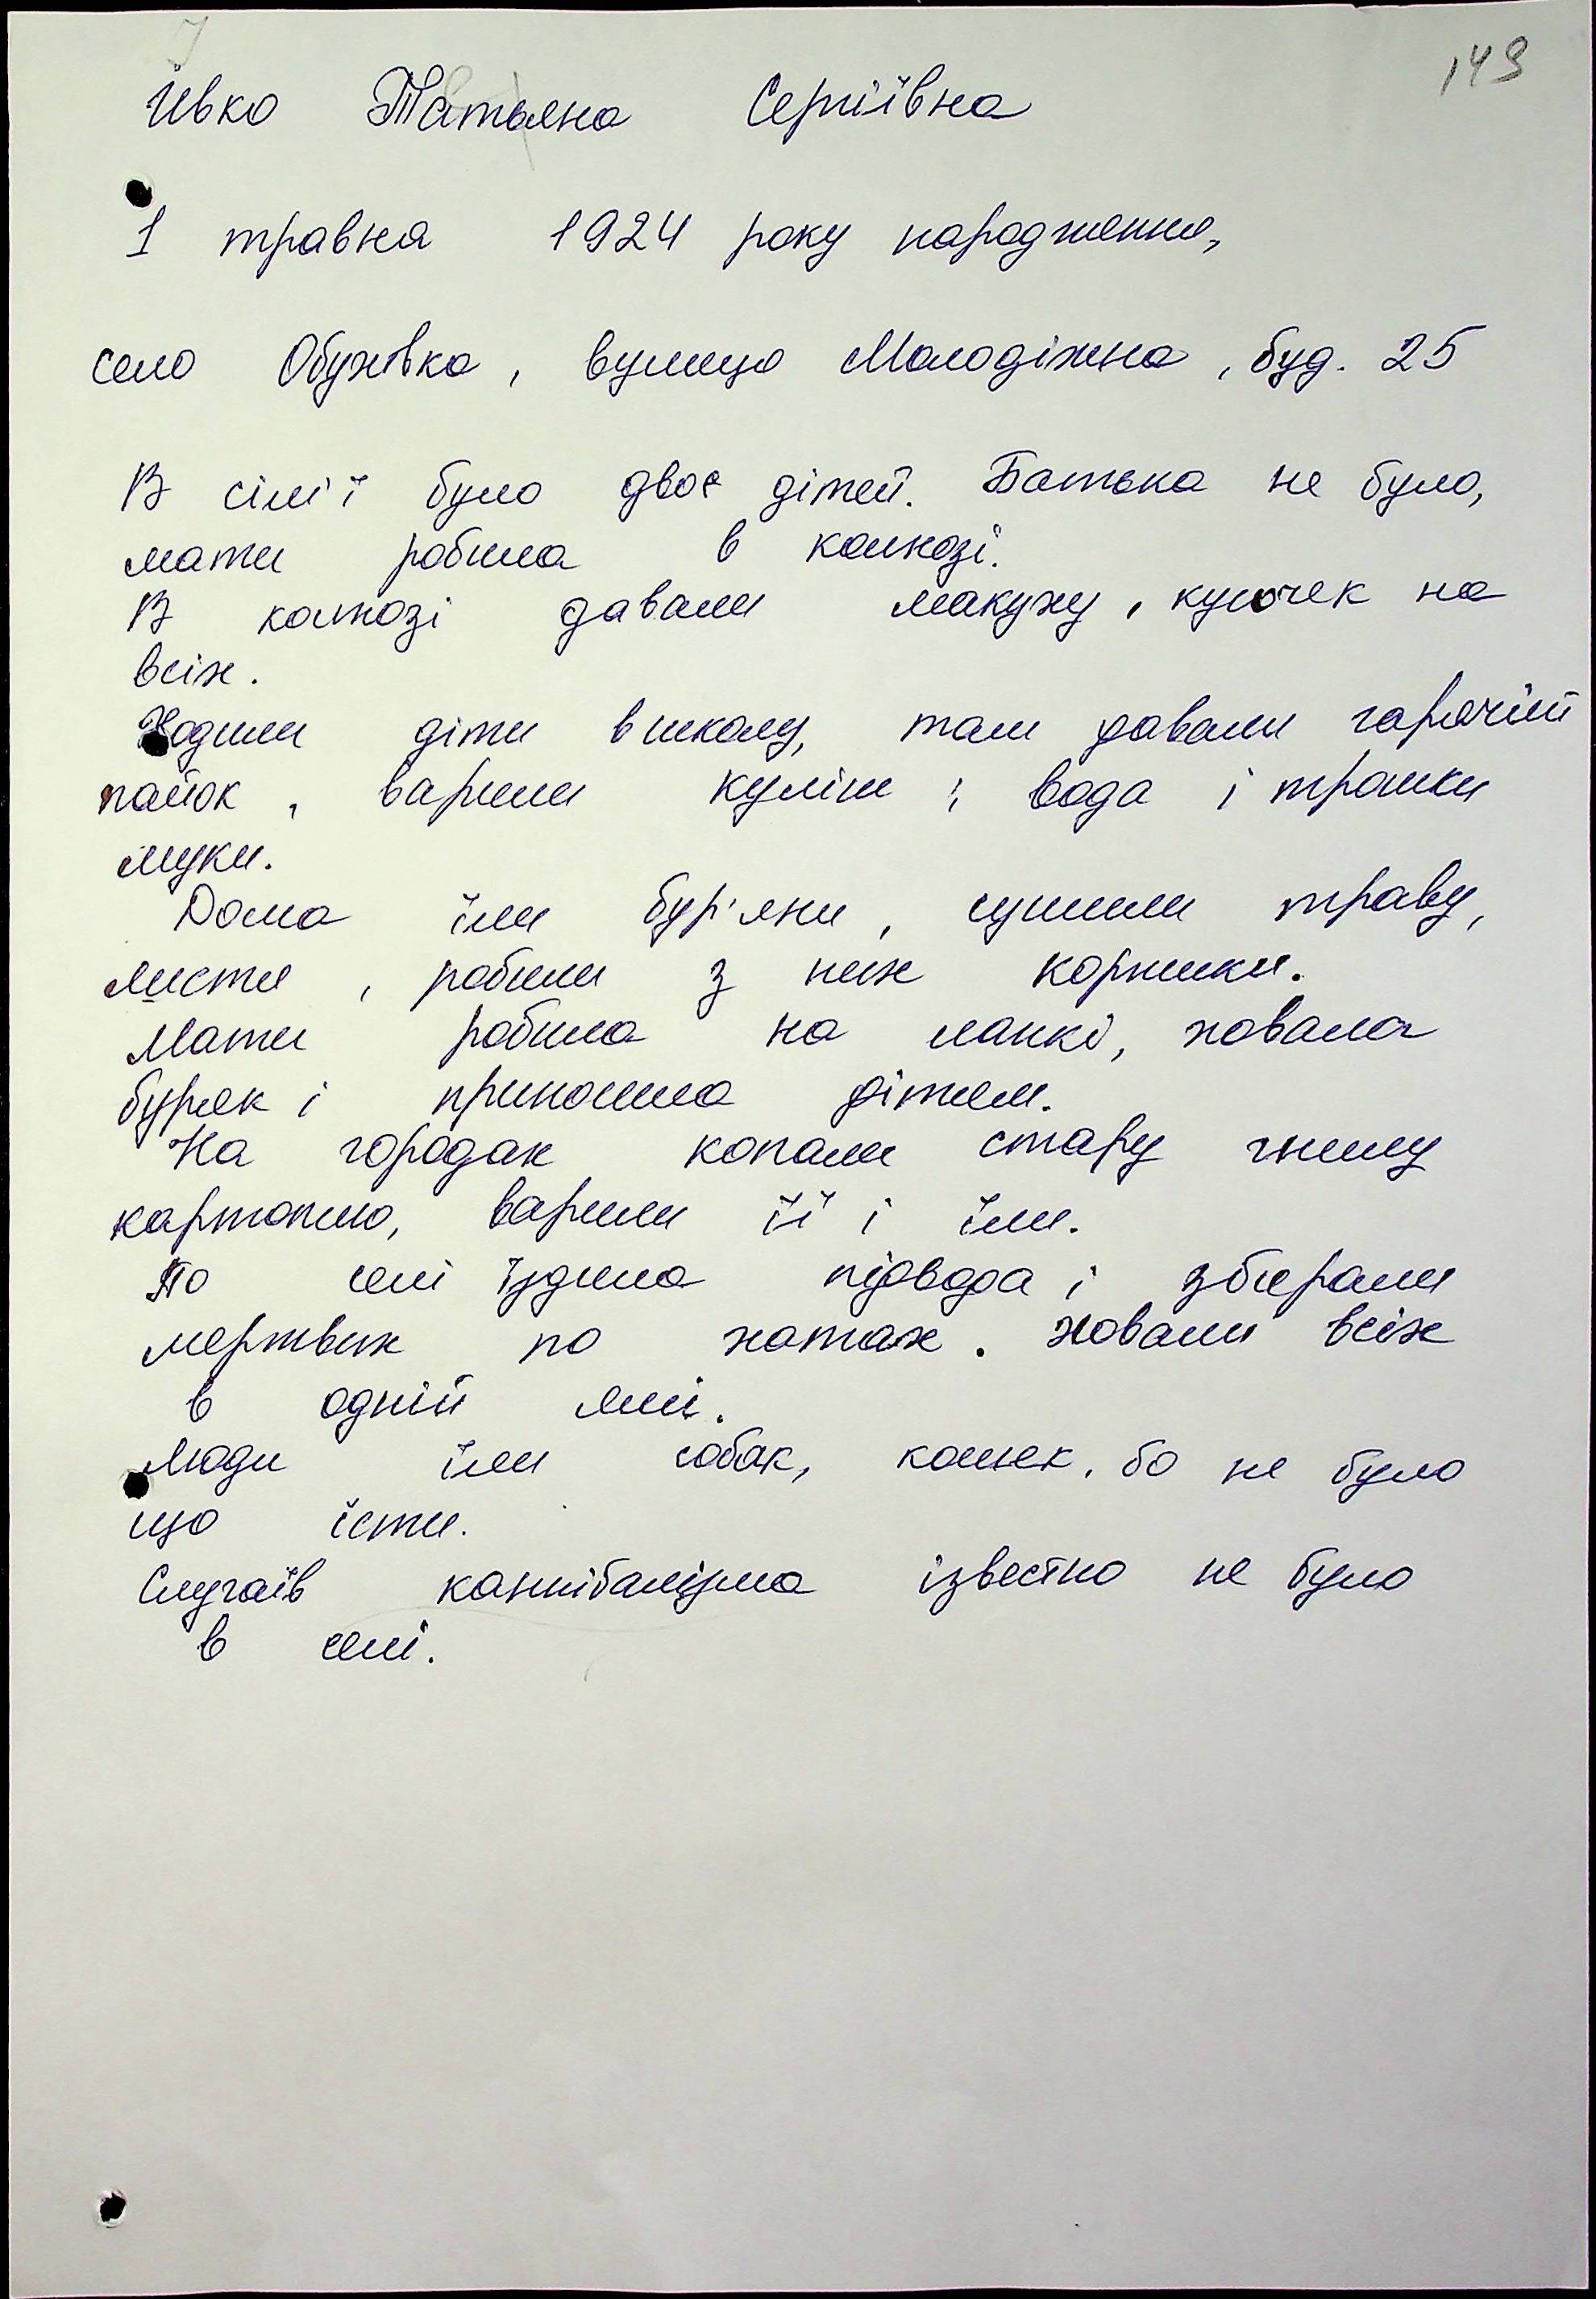 149
Ивко Татьяна Сергіївна
1 травня 1924 року народження,
село Обухівка, вулиця Молодіжна, буд. 25
В сім'ї було двоє дітей. Батька не було,
мати робила в колхозі.
В колхозі давали макуху, кусочек на
всіх.
Ходили діти в школу, там давали гарячій
пайок, варили куліш; вода і трошки
муки.
Дома їли бур'яни, сушили траву,
листя, робили з них коржики.
Мати робила на ланкі, ховала
буряк і приносила дітям.
На городах копали стару гнилу
картоплю, варили її і їли.
По селі їздила підвода і збирали
мертвих по хатах. Ховали всіх
в одній ямі.
Люди їли собак, кошек, бо не було
що їсти.
Случаїв каннібалізма ізвестно не було
в селі.